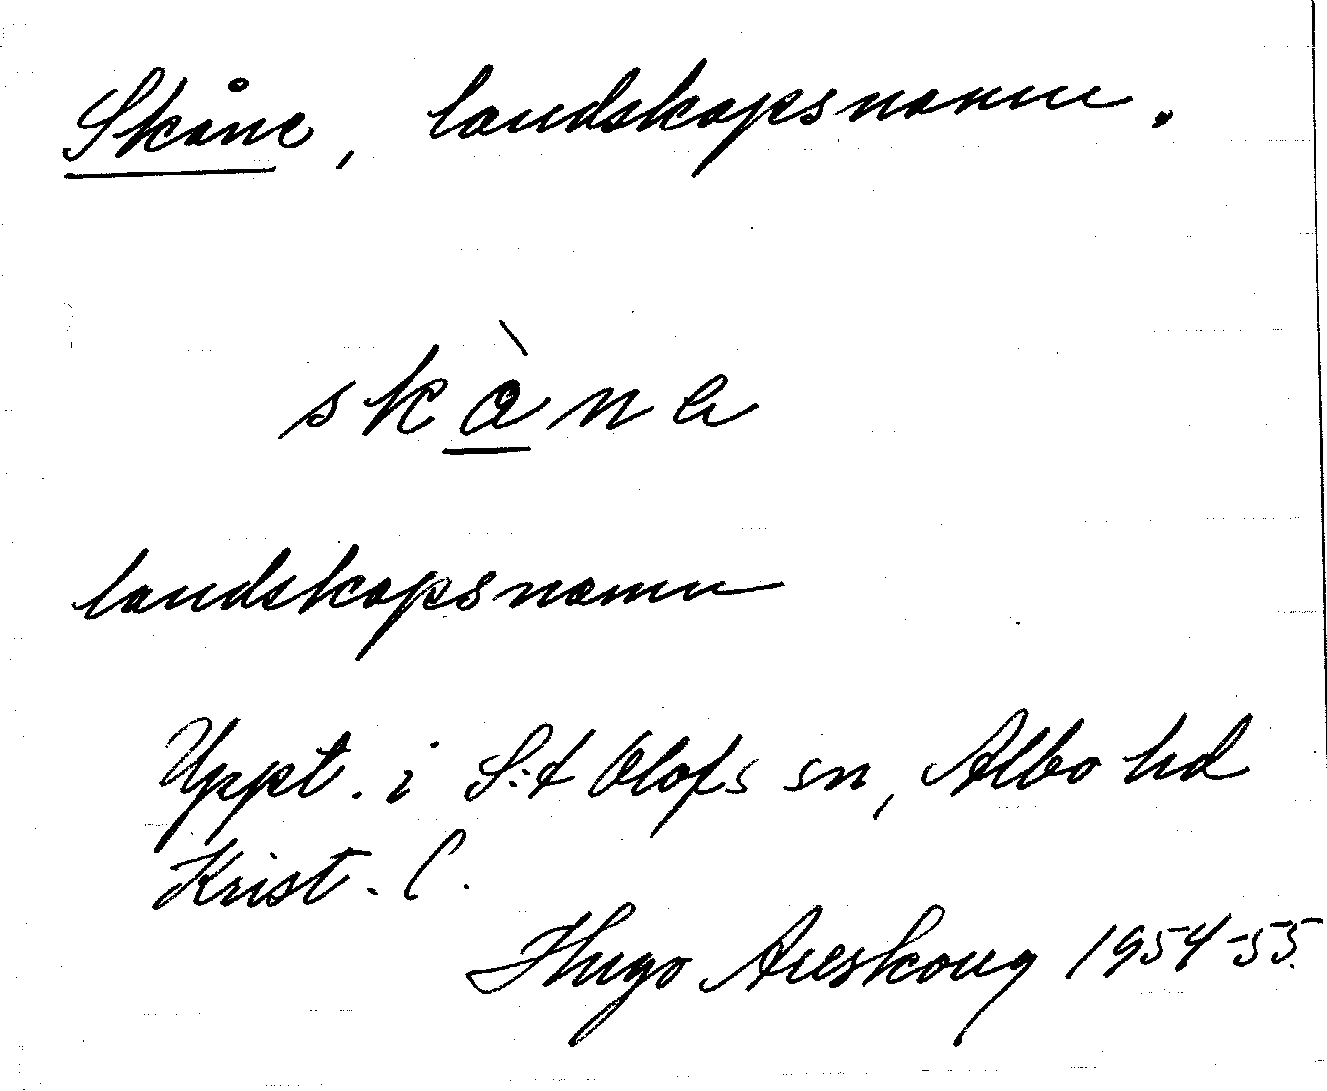 Skåne, landskapsnamn.
skàna
landskapsnamn
Uppt. i S:t Olofs sn, Albo hd
Krist. l.
Hugo Areskoug 1954-55.